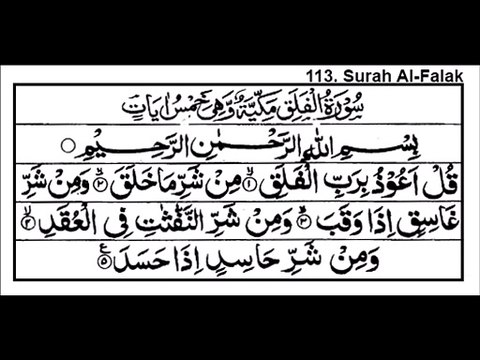 113. Surah Al-Falak
سُوْرَةُ الْفَلَقِ مَكِّيَّةٌ وَّهِيَ خَمْسُ اٰيَاتٍ
بِسْمِ اللّٰهِ الرَّحْمٰنِ الرَّحِيْمِ ○
قُلْ اَعُوْذُ بِرَبِّ الْفَلَقِ ۙ﴿۱﴾ مِنْ شَرِّ مَا خَلَقَ ۙ﴿۲﴾ وَمِنْ شَرِّ
غَاسِقٍ اِذَا وَقَبَ ۙ﴿۳﴾ وَمِنْ شَرِّ النَّفّٰثٰتِ فِى الْعُقَدِ ۙ﴿۴﴾
وَمِنْ شَرِّ حَاسِدٍ اِذَا حَسَدَ ﴿۵﴾ ع